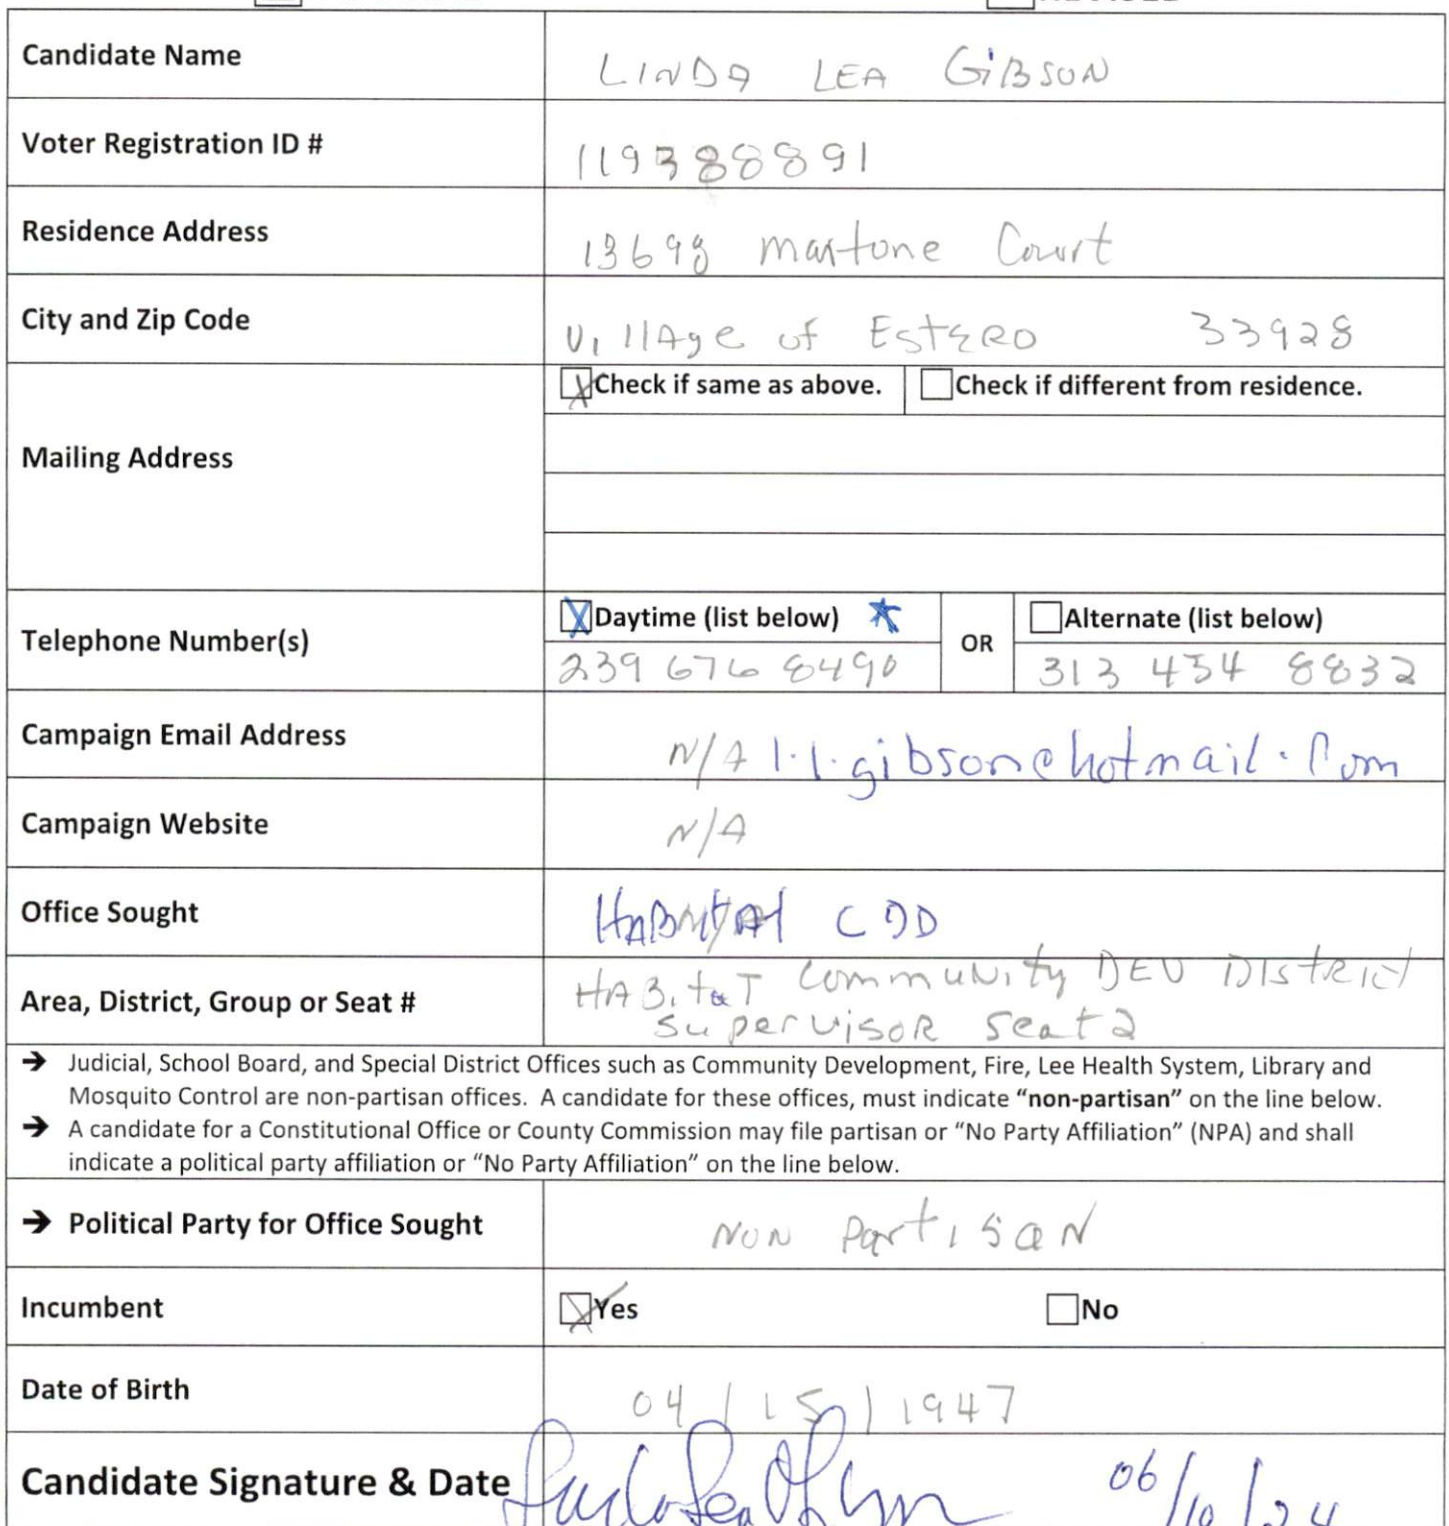 Candidate Name LINDA LEA GiBSON
Voter Registration ID # 119388891
Residence Address 13698 martone Court
City and Zip Code VillAge of EstERO 33928
Check if same as above. Check if different from residence.
Mailing Address
Daytime (list below) OR Alternate (list below)
Telephone Number(s) 239 676 8490 313 454 8832
Campaign Email Address N/A l.l.gibson@hotmail.com
Campaign Website N/A
Office Sought HABITAT CDD
Area, District, Group or Seat # HABitaT CommuNity DEV DIstRict
supervisoR seat 2
→ Judicial, School Board, and Special District Offices such as Community Development, Fire, Lee Health System, Library and
Mosquito Control are non-partisan offices. A candidate for these offices, must indicate “non-partisan” on the line below.
→ A candidate for a Constitutional Office or County Commission may file partisan or “No Party Affiliation” (NPA) and shall
indicate a political party affiliation or “No Party Affiliation” on the line below.
→ Political Party for Office Sought NON PartisaN
Incumbent Yes No
Date of Birth 04/15/1947
Candidate Signature & Date 06/10/24